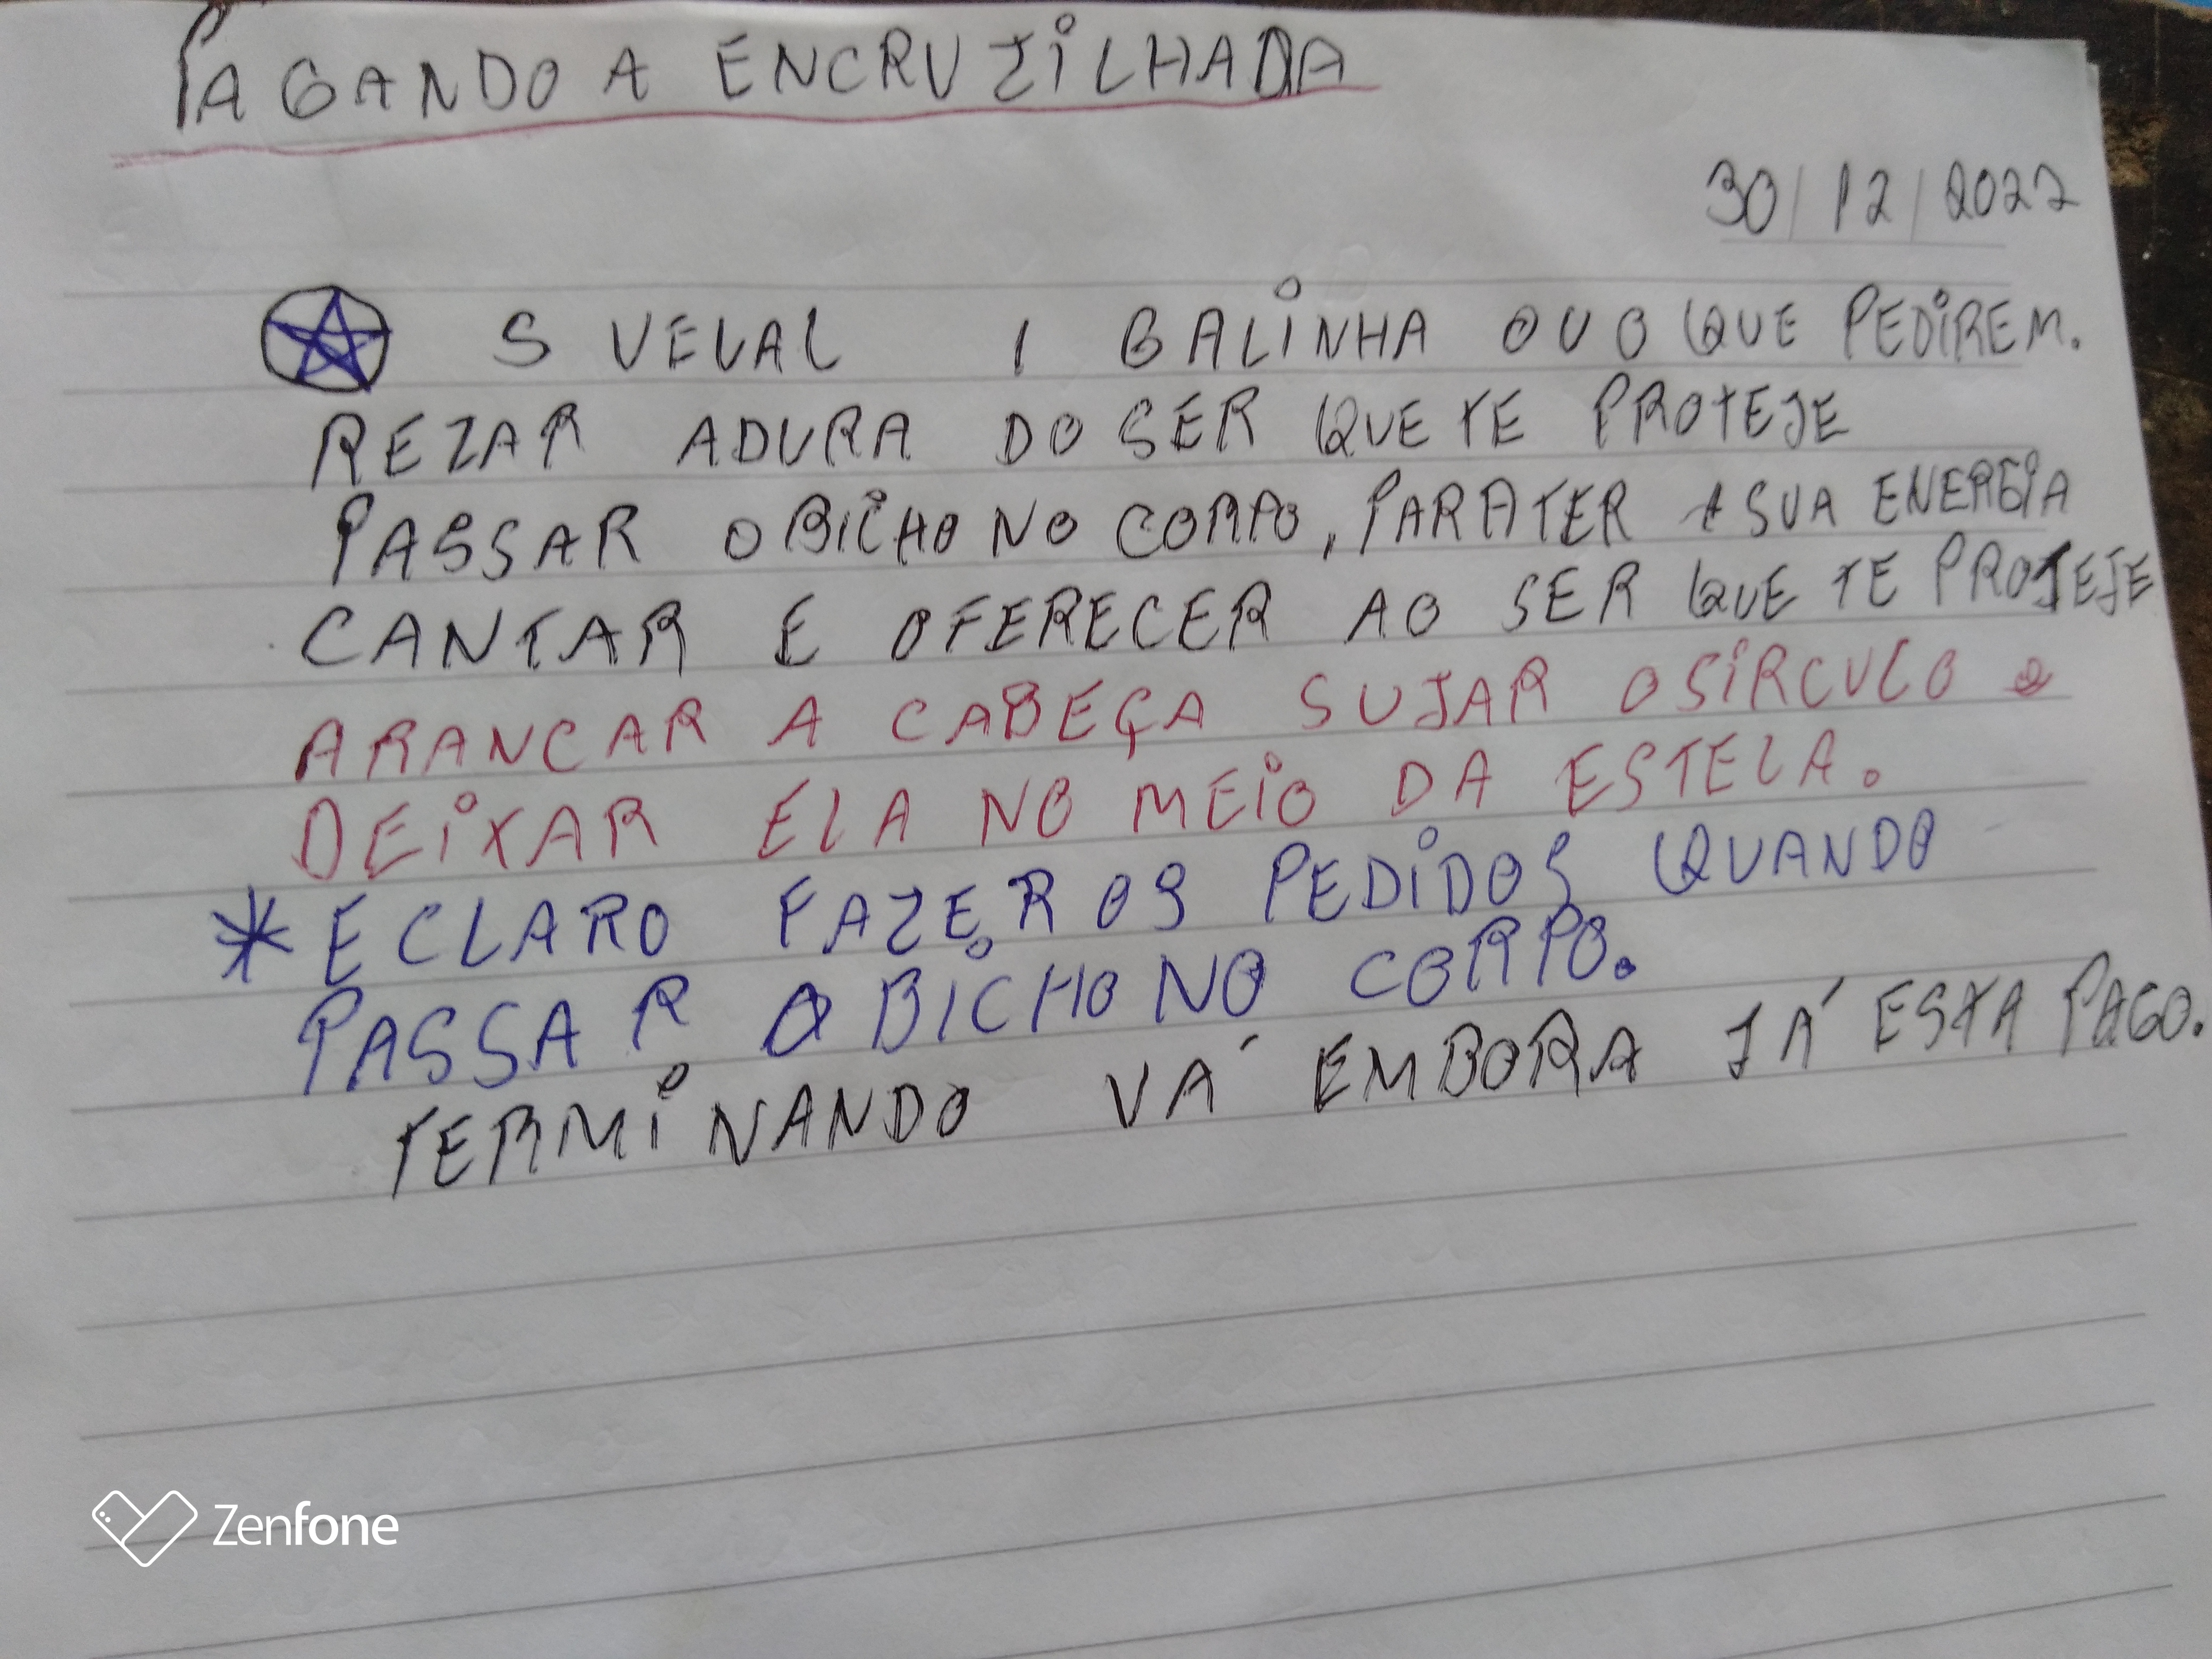 PAGANDO A ENCRUZILHADA
30/12/2022
5 VELAL 1 GALINHA OU O QUE PEDIREM.
REZAR ADURA DO SER QUE TE PROTEJE
PASSAR O BICHO NO CORPO, PARA TER A SUA ENERGIA
CANTAR E OFERECER AO SER QUE TE PROTEJE
ARANCAR A CABEÇA SUJAR O SIRCULO e
DEIXAR ELA NO MEIO DA ESTELA.
* E CLARO FAZER OS PEDIDOS QUANDO
PASSAR O BICHO NO CORPO.
TERMINANDO VÁ EMBORA JÁ ESTA PAGO.
Zenfone